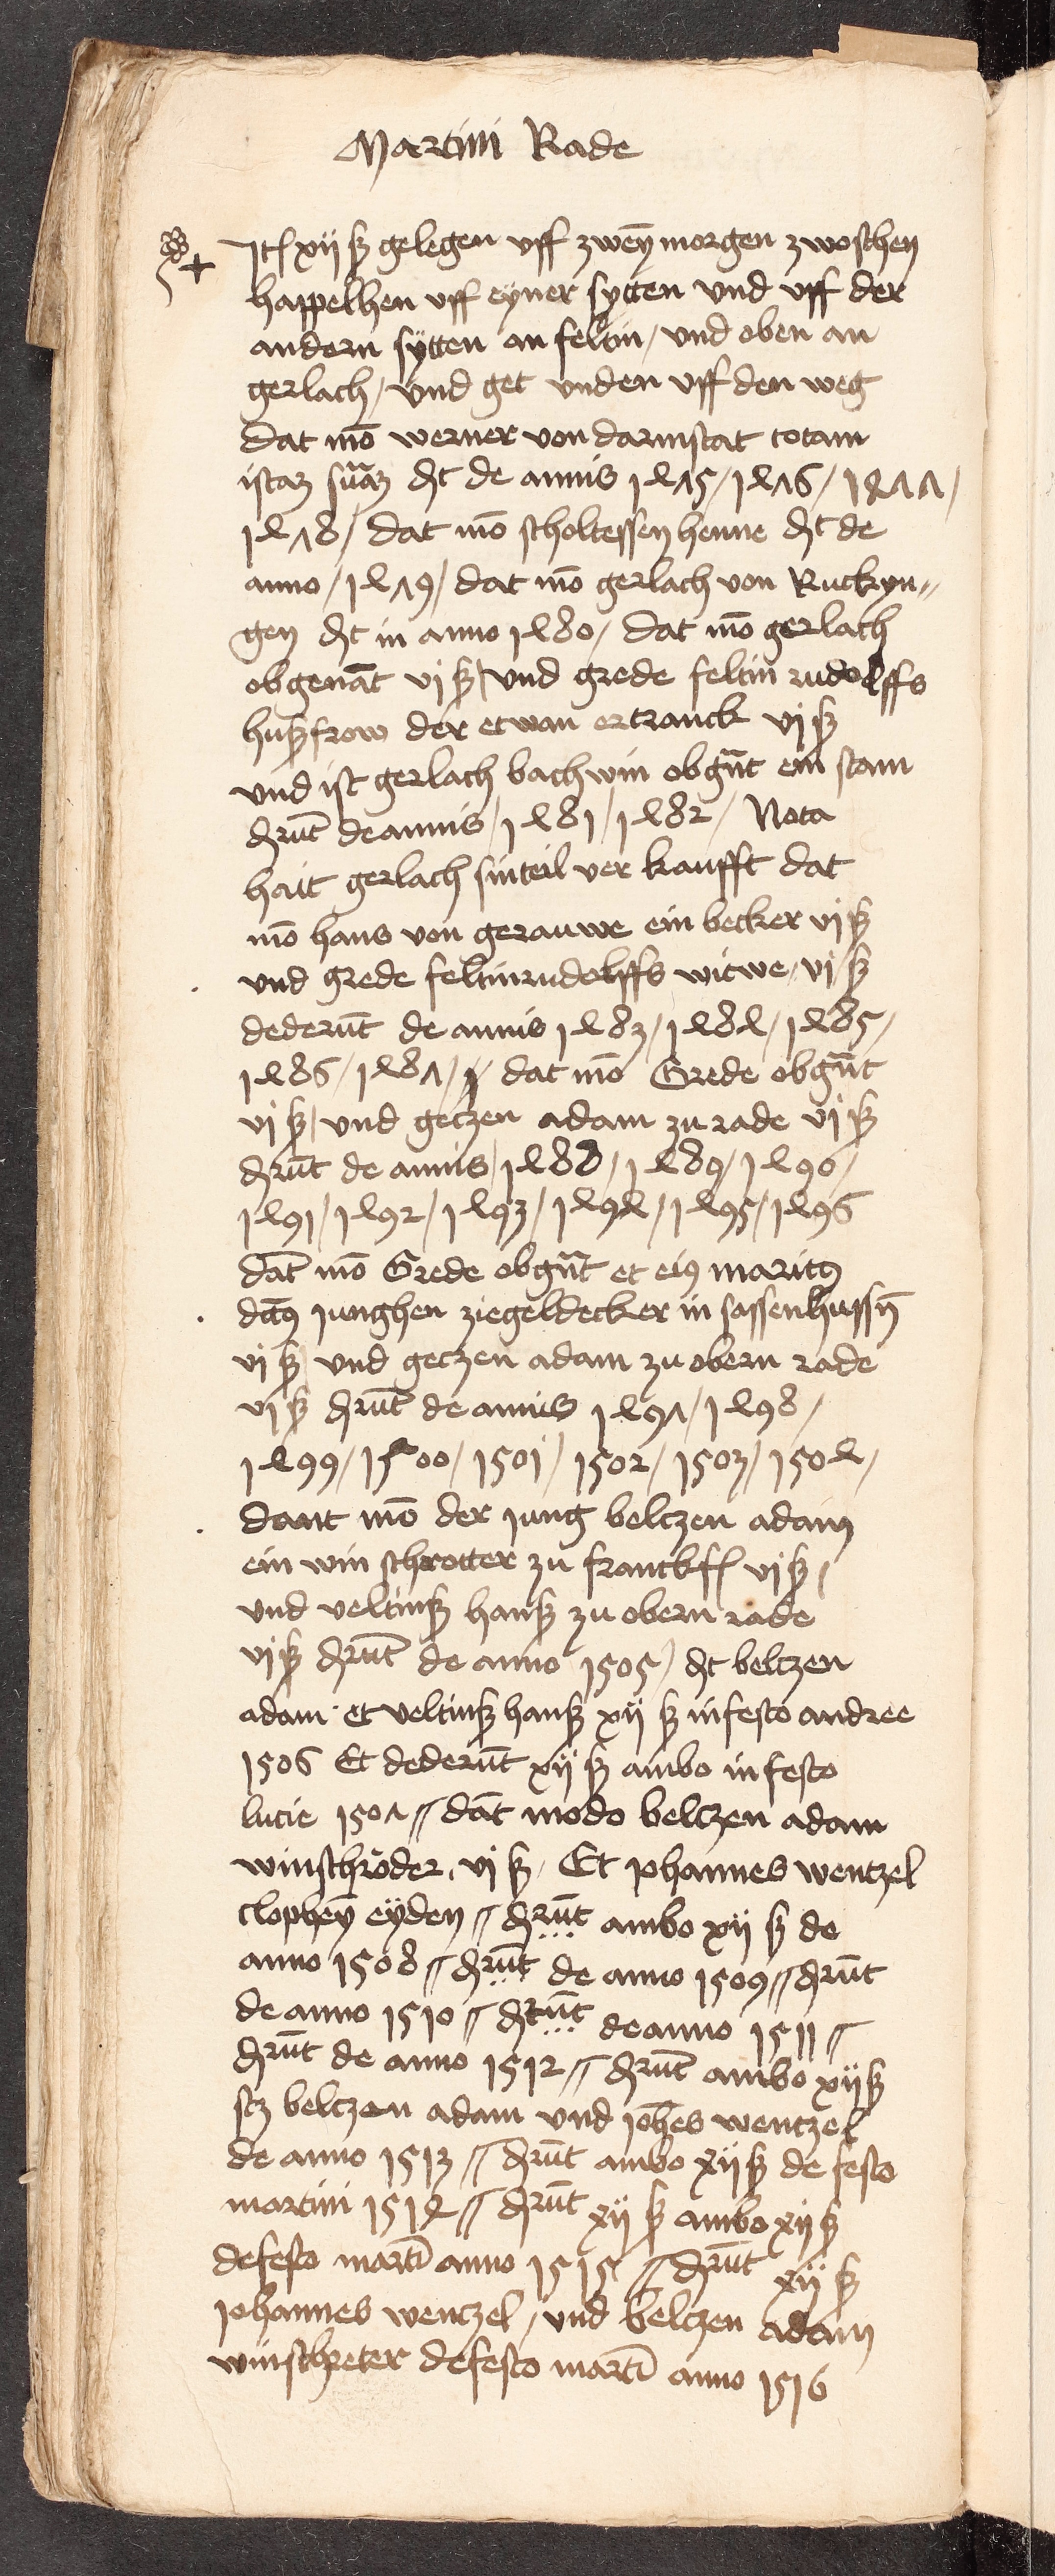 Martini Rade
Itē xij ß gelegen vff zweÿ morgen zwoschen
happelhen vff eyner sytten vnd vff der
andern sÿtten an feltin / vnd oben an
gerlach / vnd get vnden vff den weg
Dat mō werner von darmstat totam
istaz sūaz dt de annis 1475 / 1476 / 1477 /
1478 / dat mō scholtessen henne dt de
anno / 1479 / dat mō gerlach von Ruckyn〃
gen dt in anno 1480 / dat mō gerlach
obgenāt vj ß / vnd grede feltin rudolffs
hußfrow der etwan ertranck vj ß
vnd ist gerlach bachwin obgn̄t ein stam
drūt de annis / 1481 / 1482 / Nota
hait gerlach sin teil ver kaufft dat
mō hans von gerauwe ein becker vj ß
vnd grede feltin rudolffs witwe / vj ß
dederūt de annis 1483 / 1484 / 1485 /
1486 / 1487 / dat mō Grede obgn̄t
vj ß / vnd getzen adam zu rade vj ß
drūt de annis / 1488 / 1489 / 1490 /
1491 / 1492 / 1493 / 1494 / 1495 / 1496
dāt mō Grede obgn̄t et eiꝯ maritꝯ
dc̄ꝯ junghen ziegeldecker in sassenhussn̄
vj ß vnd getzen adam zu obern rade
vj ß drūt de annis 1497 / 1498 /
1499 / 1500 / 1501 / 1502 / 1503 / 1504 /
dant mō der jung beltzen adam
ein win schrotter zu franckf̄ vj ß /
vnd veltinß hanß zu obern rade
vj ß drūt de anno 1505 / dt beltzen
adam et veltinß hanß xij ß in festo andree
1506 Et dederūt xij ß ambo in festo
lucie 1507 // dāt modo beltzen adam
winschröder vj ß / Et Johannes wentzel
clopheÿ eÿden // drūt ambo xij ß de
anno 1508 // drūt de anno 1509 // drūt
de anno 1510 // drūt de anno 1511 //
drūt de anno 1512 // drūt ambo xij ß
scz beltzen adam vnd johēs wentzel
de anno 1513 // drūt ambo xij ß de festo
martini 1514 // drūt xij ß ambo xij ß
de festo martī anno 1515 // drūt xij ß
Johannes wentzel / vnd beltzen adam
winschreter de festo martī anno 1516